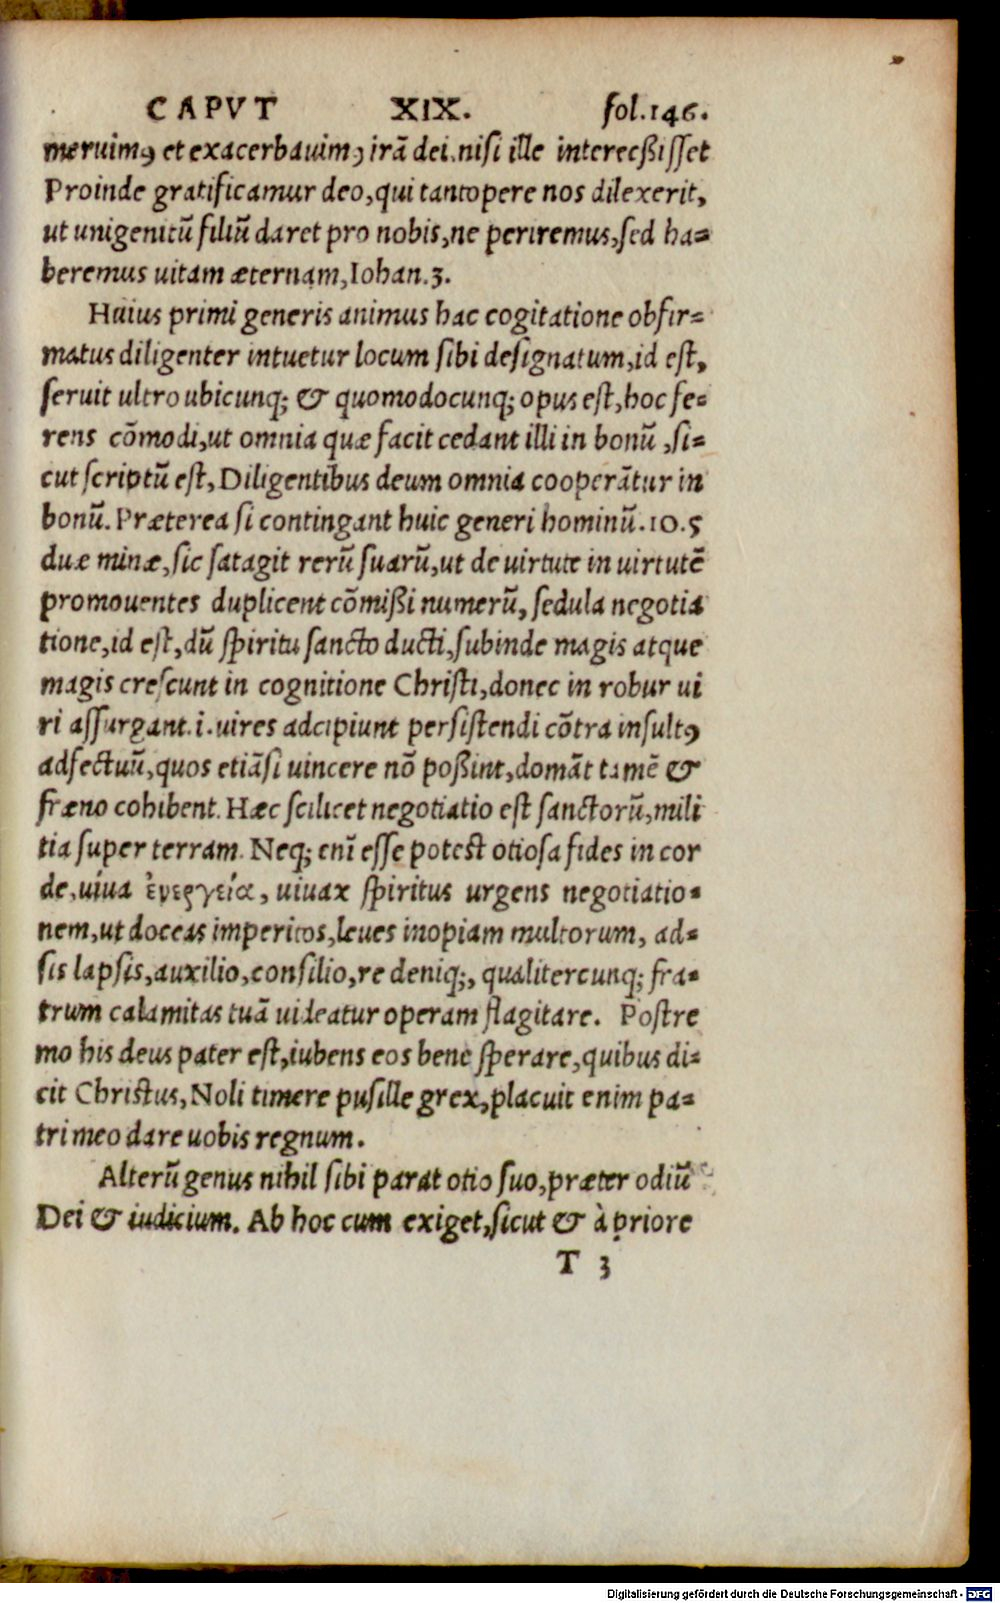 CAPVT XIX. fol.146.
meruimꝰ et exacerbauimꝰ irã dei.nisi ille interceßisset
Proinde gratificamur deo,qui tantopere nos dilexerit,
ut unigenitũ filiũ daret pro nobis,ne periremus,sed ha=
beremus uitam æternam,Iohan.3.
Huius primi generis animus hac cogitatione obfir=
matus diligenter intuetur locum sibi designatum,id est,
seruit ultro ubicunq; & quomodocunq; opus est,hoc fe=
rens cõmodi,ut omnia quæ facit cedant illi in bonũ ,si=
cut scriptũ est, Diligentibus deum omnia cooperãtur in
bonũ. Præterea si contingant huic generi hominũ.10.5
duæ minæ,sic satagit rerũ suarũ,ut de uirtute in uirtutẽ
promouentes duplicent cõmißi numerũ, sedula negotia
tione,id est,dũ spiritu sancto ducti,subinde magis atque
magis crescunt in cognitione Christi,donec in robur ui
ri assurgant.i.uires adcipiunt persistendi cõtra insultꝰ
adfectuũ,quos etiãsi uincere nõ poßint,domãt tamẽ &
fræno cohibent. Hæc scilicet negotiatio est sanctorũ,mili
tia super terram. Neq; enĩ esse potest otiosa fides in cor
de,uiua ἐνεργεία, uiuax spiritus urgens negotiatio=
nem,ut doceas imperitos,leues inopiam multorum, ad=
sis lapsis,auxilio,consilio,re deniq;, qualitercunq; fra=
trum calamitas tuã uideatur operam flagitare. Postre
mo his deus pater est,iubens eos bene sperare,quibus di=
cit Christus,Noli timere pusille grex,placuit enim pa=
tri meo dare uobis regnum.
Alterũ genus nihil sibi parat otio suo,præter odiũ
Dei & iudicium. Ab hoc cum exiget,sicut & à priore
T 3
Digitalisierung gefördert durch die Deutsche Forschungsgemeinschaft - DFG